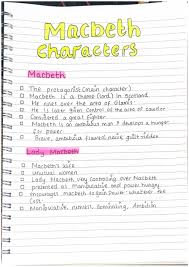 Macbeth
Characters
Macbeth
The protagonist (main character)
Macbeth is a thane (lord) in Scotland
He rules over the area of Glamis
He is later given control of the area of Cawdor
Considered a great fighter
Macbeth is an ambitious man & develops a hunger
for power
Brave, ambitious, guilt ridden
Lady Macbeth
Macbeth's wife
unusual women
Lady Macbeth very controlling over Macbeth
presented as manipulative and power hungry
encourages Macbeth to get what they want whatever the
cost
Manipulative, ruthless, dominating, Ambition